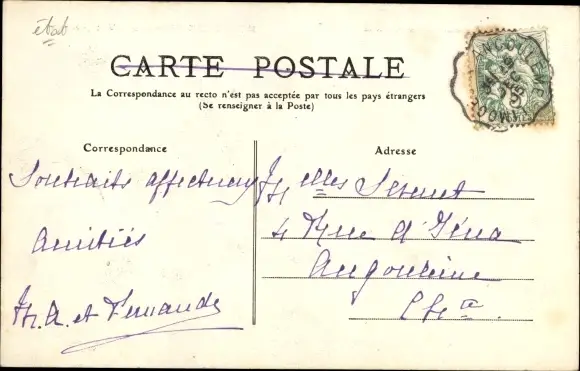 état
CARTE POSTALE
La Correspondance au recto n'est pas acceptée par tous les pays étrangers
(Se renseigner à la Poste)
Correspondance
Adresse
Souhaits affectueux
Amitiés
M. A. et Fernande
Melles
4 Rue d'Iéna
Angoulême
Chte.